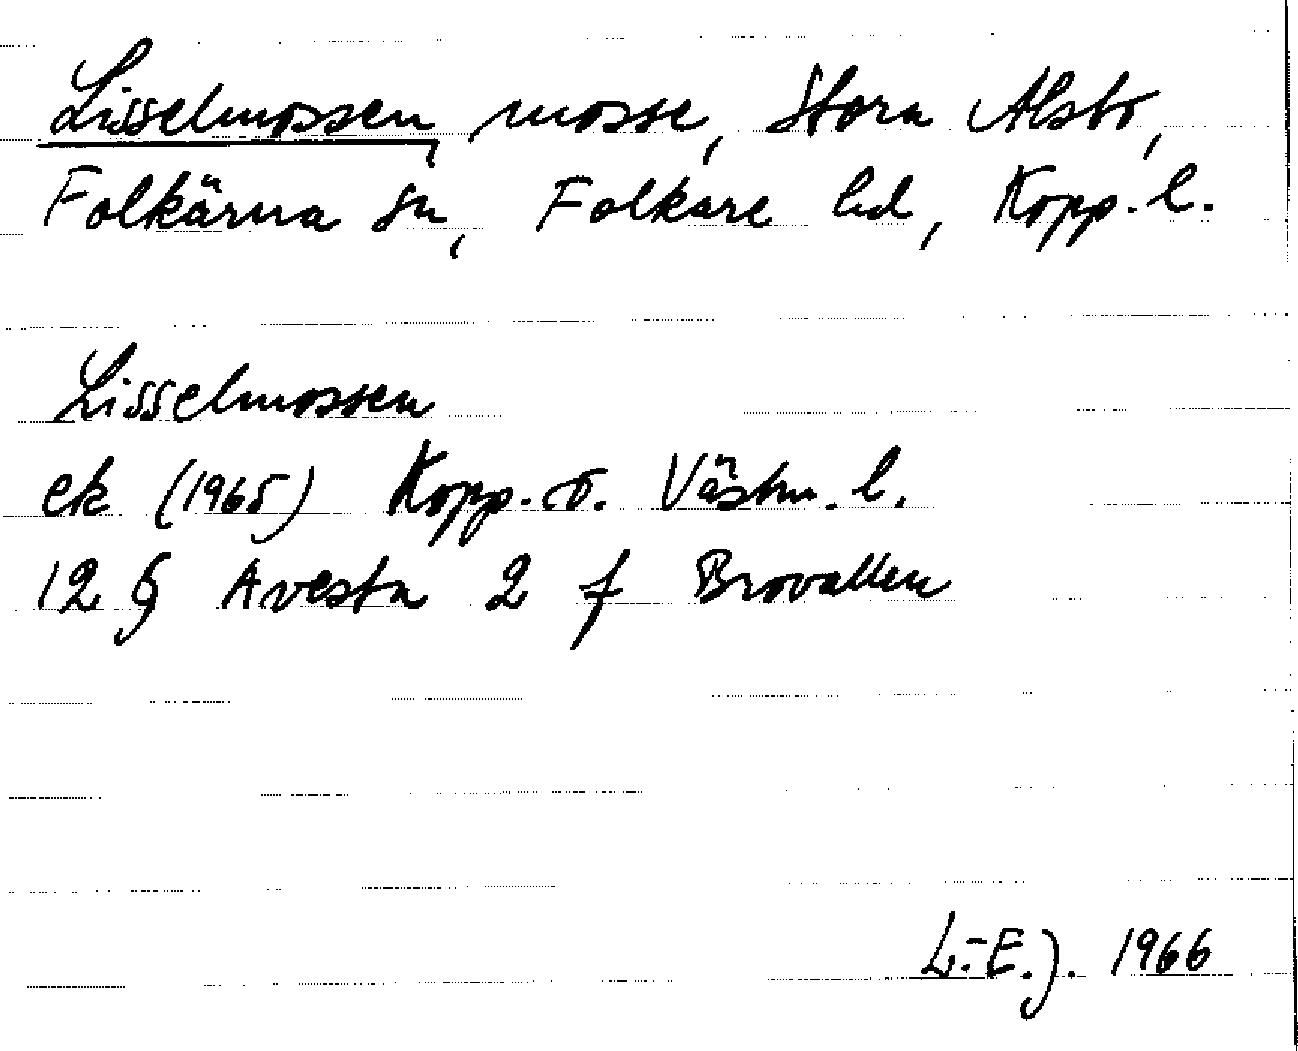 Lisselmossen, mosse, Stora Alsbo,
Folkärna sn, Folkare hd, Kopp. l.
Lisselmossen
ek (1965) Kopp. o. Västm. l.
12 G Avesta 2 f Brovallen
L.-E. J. 1966